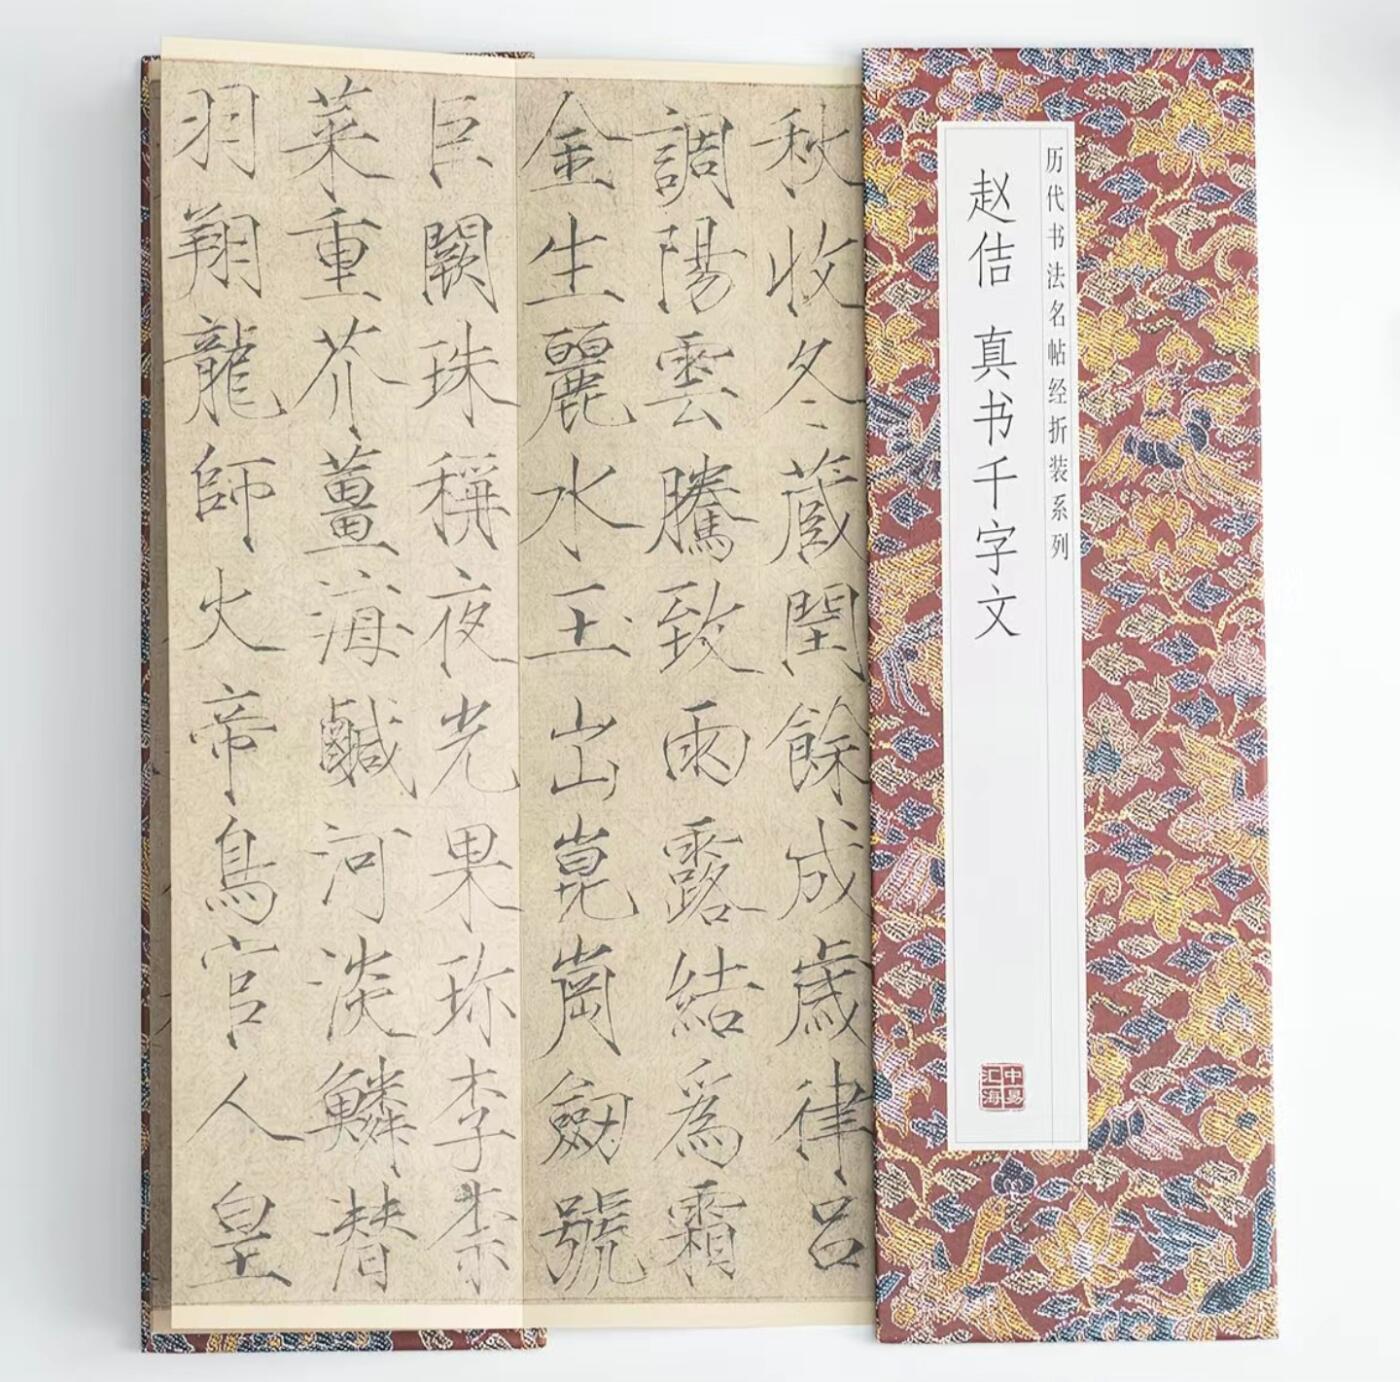 历代书法名帖经折装系列
赵佶 真书千字文
中易汇海
秋收冬蔵閏餘成歳律吕
調陽雲騰致雨露結爲霜
金生麗水玉出崑崗劔號
巨闕珠稱夜光果珎李柰
菜重芥薑海鹹河淡鱗潜
羽翔龍師火帝鳥官人皇